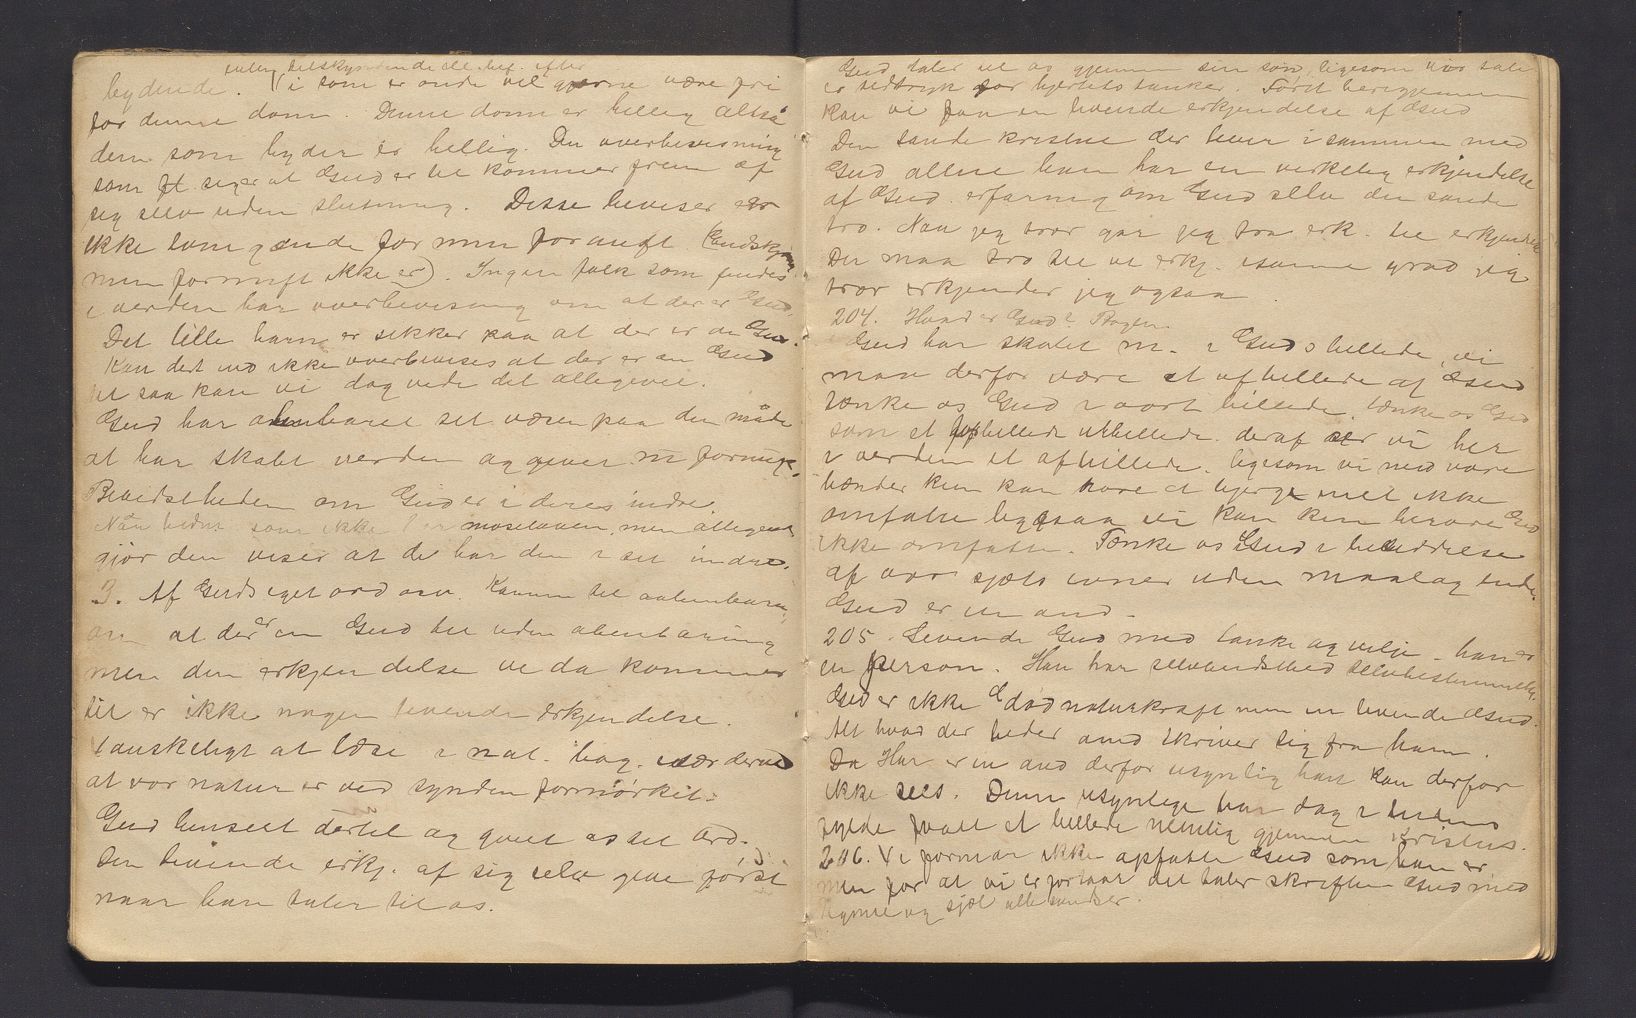 bydende. Vi som er onde vil gjerne være fri
for denne dom. Denne dom er hellig altsaa
den som byder er hellig. Den overbevisning
som ft. siger at Gud er til kommer frem af
sig selv uden slutning. Disse beviser er
ikke tvingende for min fornuft. (Endskjøn
min fornuft ikke er). Ingen folk som findes
i verden har overbevisning om at der er Gud.
Det lille barn er sikker paa at der er en Gud.
Kan det end ikke overbevises at der er en Gud
til saa kan vi dog vide det alligevel.
Gud har aabenbaret sit væsen paa den måde
at han skabt verden og giver m. fornuft.
Bevidstheden om Gud er i deres indre.
som ikke har moseloven, men alligevel
gjør den viser at de har den i sit indre.
3. Af Guds eget ord om. Kommer til aabenbaring
om at der er en Gud til uden abenbaring
men den erkjendelse vi da kommer
til er ikke nogen levende erkjendelse.
Vanskeligt at læse i nat. bog. især derved
at vor natur er ved synden formørket.
Gud henseet dertil og givet os sit Ord.
Den levende erkj. af sig selv give først
naar han taler til os.
Gud taler til os gjennem sin søn, ligesom vor tale
er udtryk for hjertets tanker. Først herigjennem
kan vi faa en levende erkjendelse af Gud
Den sande kristne der lever i sammen med
Gud allene han har en virkelig erkjendelse
af Gud. erfaring om Gud selv den sande
tro. Naar jeg tror gaar jeg fra erk. til erkjendelse
Der maa tro til at erkj. i samme grad jeg
tror erkjender jeg ogsaa.
204. Hvad er Gud? Bogen.
Gud har skabt m. i Guds billede, vi
maa derfor være et afbillede af Gud
tænke os Gud i vort billede, tænke os Gud
som et forbillede urbillede. deraf ser vi her
i verden et afbillede. ligesom vi med vore
hænder kun kan røre et bjerg men ikke
omfatte ligesaa vi kan kun berøre Gud
ikke omfatte. Tænke os Gud i besiddelse
af vor sjæls evner uden maal og ende.
Gud er en aand.
205. Levende Gud med tanke og vilje - han er
en person. Han har selvbevidsthed selvbestemmelse.
Gud er ikke død naturkraft men en levende Gud.
Alt hvad der heder aand skriver sig fra ham.
Da Han er en aand derfor usynlig han kan derfor
ikke sees. Denne usynlige har dog i tidens
fylde faaet et billede nemlig gjennem Kristus.
206. Vi formaar ikke opfatte Gud som han er
men for at vi forstaar det taler skriften Gud med
og sjæl alle sandser.